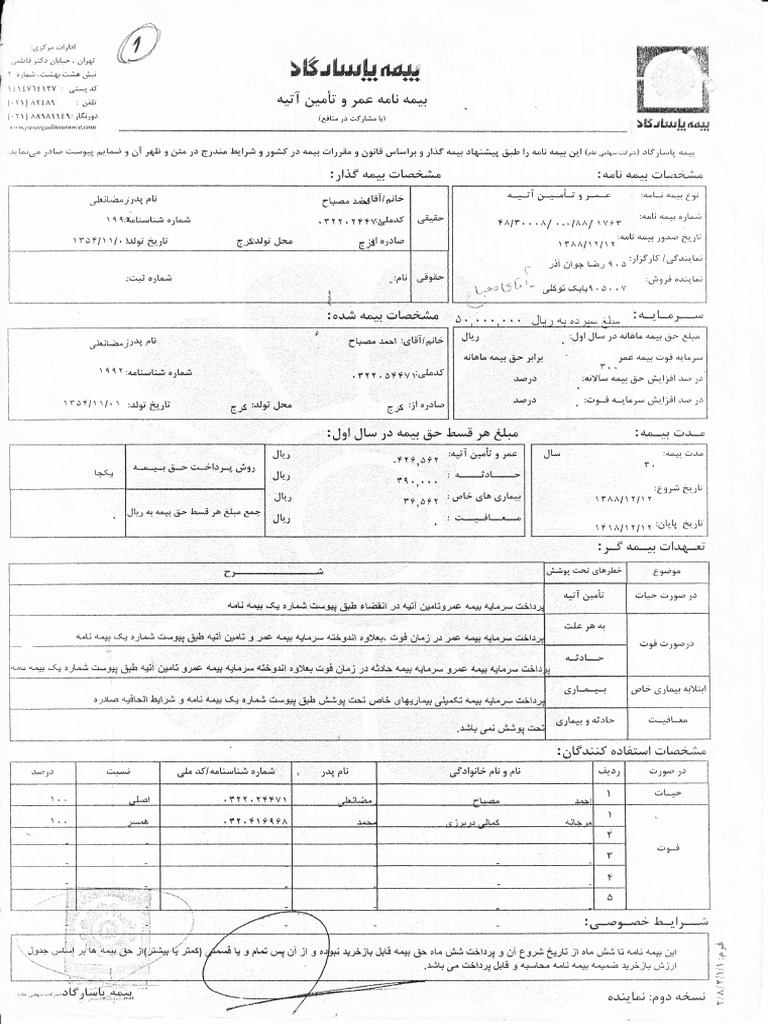 ادارات مرکزی:
تهران ، خیابان دکتر فاطمی
نبش هشت بهشت، شماره ۲
کد پستی : ۱۴۱۴۷۶۴۱۳۷
تلفن : ۸۲۴۸۹ (۰۲۱)
دورنگار: ۸۸۹۸۱۱۴۹ (۰۲۱)
www.pasargadinsurance.com
1
بیمه پاسارگاد
بیمه نامه عمر و تأمین آتیه
(با مشارکت در منافع)
بیمه پاسارگاد
بیمه پاسارگاد (شرکت سهامی عام) این بیمه نامه را طبق پیشنهاد بیمه گذار و براساس قانون و مقررات بیمه در کشور و شرایط مندرج در متن و ظهر آن و ضمایم پیوست صادر می‌نماید.
مشخصات بیمه نامه:
نوع بیمه نامه: عمر و تأمین آتیه
شماره بیمه نامه:
تاریخ صدور بیمه نامه: ۱۳۸۸/۱۲/۱۲
نمایندگی/ کارگزار: ۹۰۵ رضا جوان آذر
نماینده فروش: ۹۰۵۰۰۷ بابک توکلی
مشخصات بیمه گذار:
حقیقی
خانم/آقای: مصباح نام پدر: رمضانعلی
کدملی: شماره شناسنامه:
صادره از: کرج محل تولد: کرج تاریخ تولد:
حقوقی نام: شماره ثبت:
سرمایه: مبلغ سپرده به ریال ۵۰,۰۰۰,۰۰۰
مبلغ حق بیمه ماهانه در سال اول: ریال
سرمایه فوت بیمه عمر ۳۰۰ برابر حق بیمه ماهانه
در صد افزایش حق بیمه سالانه: درصد
در صد افزایش سرمایه فوت: درصد
مشخصات بیمه شده:
خانم/آقای: احمد مصباح نام پدر: رمضانعلی
کدملی: ۰۳۲۲۰۵۴۴۷۱ شماره شناسنامه: ۱۹۹۲
صادره از: کرج محل تولد: کرج تاریخ تولد: ۱۳۵۴/۱۱/۰۱
مدت بیمه:
مدت بیمه: ۳۰ سال
تاریخ شروع: ۱۳۸۸/۱۲/۱۲
تاریخ پایان: ۱۴۱۸/۱۲/۱۲
مبلغ هر قسط حق بیمه در سال اول:
عمر و تأمین آتیه: -۴۲۶,۵۶۲ ریال
حادثه: ۳۹۰,۰۰۰ ریال
بیماری های خاص: ۳۶,۵۶۲ ریال
معافیت: ۰ ریال
روش پرداخت حق بیمه یکجا
جمع مبلغ هر قسط حق بیمه به ریال ۰
تعهدات بیمه گر:
موضوع خطرهای تحت پوشش شرح
در صورت حیات تأمین آتیه پرداخت سرمایه بیمه عمروتامین آتیه در انقضاء طبق پیوست شماره یک بیمه نامه
درصورت فوت به هر علت پرداخت سرمایه بیمه عمر در زمان فوت ،بعلاوه اندوخته سرمایه بیمه عمر و تامین آتیه طبق پیوست شماره یک بیمه نامه
حادثه پرداخت سرمایه بیمه عمرو سرمایه بیمه حادثه در زمان فوت بعلاوه اندوخته سرمایه بیمه عمرو تامین آتیه طبق پیوست شماره یک بیمه نامه
ابتلابه بیماری خاص بیماری پرداخت سرمایه بیمه تکمیلی بیماریهای خاص تحت پوشش طبق پیوست شماره یک بیمه نامه و شرایط الحاقیه صادره
معافیت حادثه و بیماری تحت پوشش نمی باشد.
مشخصات استفاده کنندگان:
در صورت ردیف نام و نام خانوادگی نام پدر شماره شناسنامه/کد ملی نسبت درصد
حیات ۱ احمد مصباح رمضانعلی ۰۳۲۲۰۲۴۴۷۱ اصلی ۱۰۰
فوت ۱ مرجانه کمالی دربرزی محمد ۰۳۲۰۴۱۶۹۶۸ همسر ۱۰۰
۲
۳
۴
۵
شرایط خصوصی:
این بیمه نامه تا شش ماه از تاریخ شروع آن و پرداخت شش ماه حق بیمه قابل بازخرید نبوده و از آن پس تمام و یا قسمتی (کمتر یا بیشتر)از حق بیمه ها بر اساس جدول
ارزش بازخرید ضمیمه بیمه نامه محاسبه و قابل پرداخت می باشد.
نسخه دوم: نماینده
بیمه پاسارگاد شرکت سهامی عام
فرم: ۲/۸/۳/۱/۱